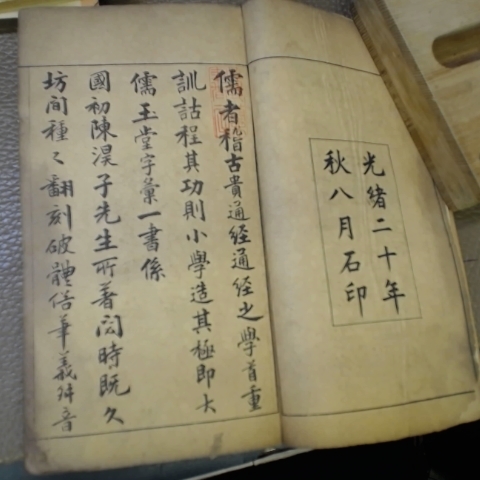 光緒二十年
秋八月石印
儒者稽古貴通經通經之學首重
訓詁程其功則小學造其極即大
儒玉堂字彙一書係
國初陳淏子先生所著閱時既久
坊間種々翻刻破體俗華義舛音